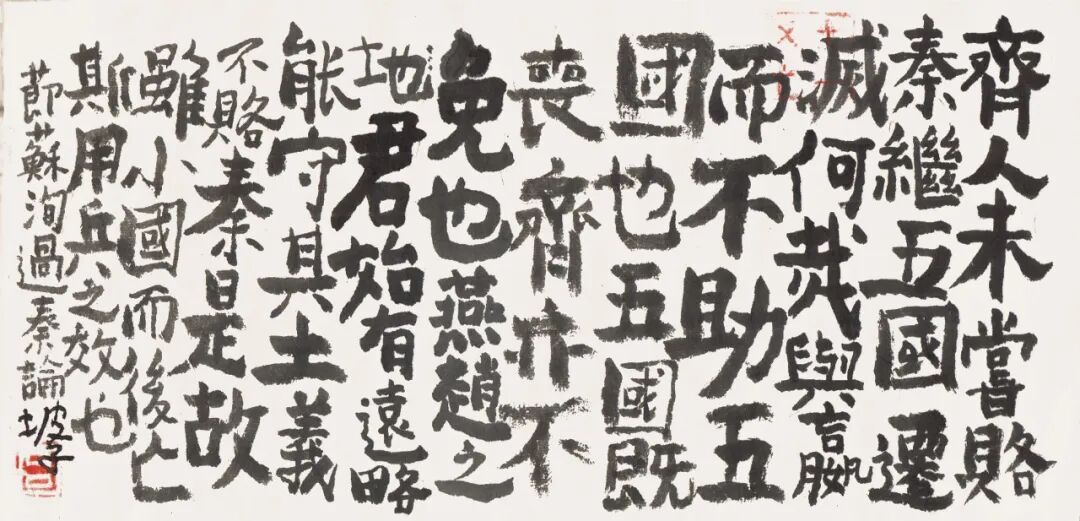 齊人未嘗賂
秦繼五國遷
滅何哉與嬴
而不助五
国也五國既
喪齊亦不
免也燕趙之
地君始有遠略
能守其土義
不賂秦是故
雖小國而後亡
斯用兵之效也
節蘇洵過秦論坡子